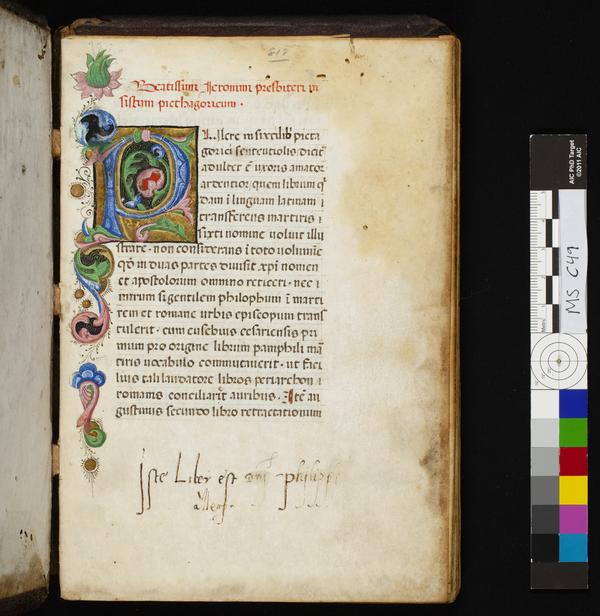 Beatissimi Ieronimi presbiteri in
sistum picthagoricum ·
DIscere in sixti lib picta
gorici sententiolis dicit
adulter ē uxoris amator
ardentior, quem librum q
dam ī linguam latinam
transferens martiris
sixti nomine voluit illu
strare · non considerans ī toto volumīe
qđ in duas partes divisit xp̄i nomen
et apostolorum omnino reticeri · nec
mirum si gentilem philosophum ī marti
rem et romane urbis episcopum trans
tulerit · cum eusebius cesariensis pri
mum pro origine librum pamphili mā
tiris vocabulo commutaverit · ut faci
lius tali laudatore libros periarchon
romanis conciliarit auribus · Itē au
gustinus secundo libro retractationum
Iste Liber est philippi
MS C49
AIC PhD Target
©2011 AIC